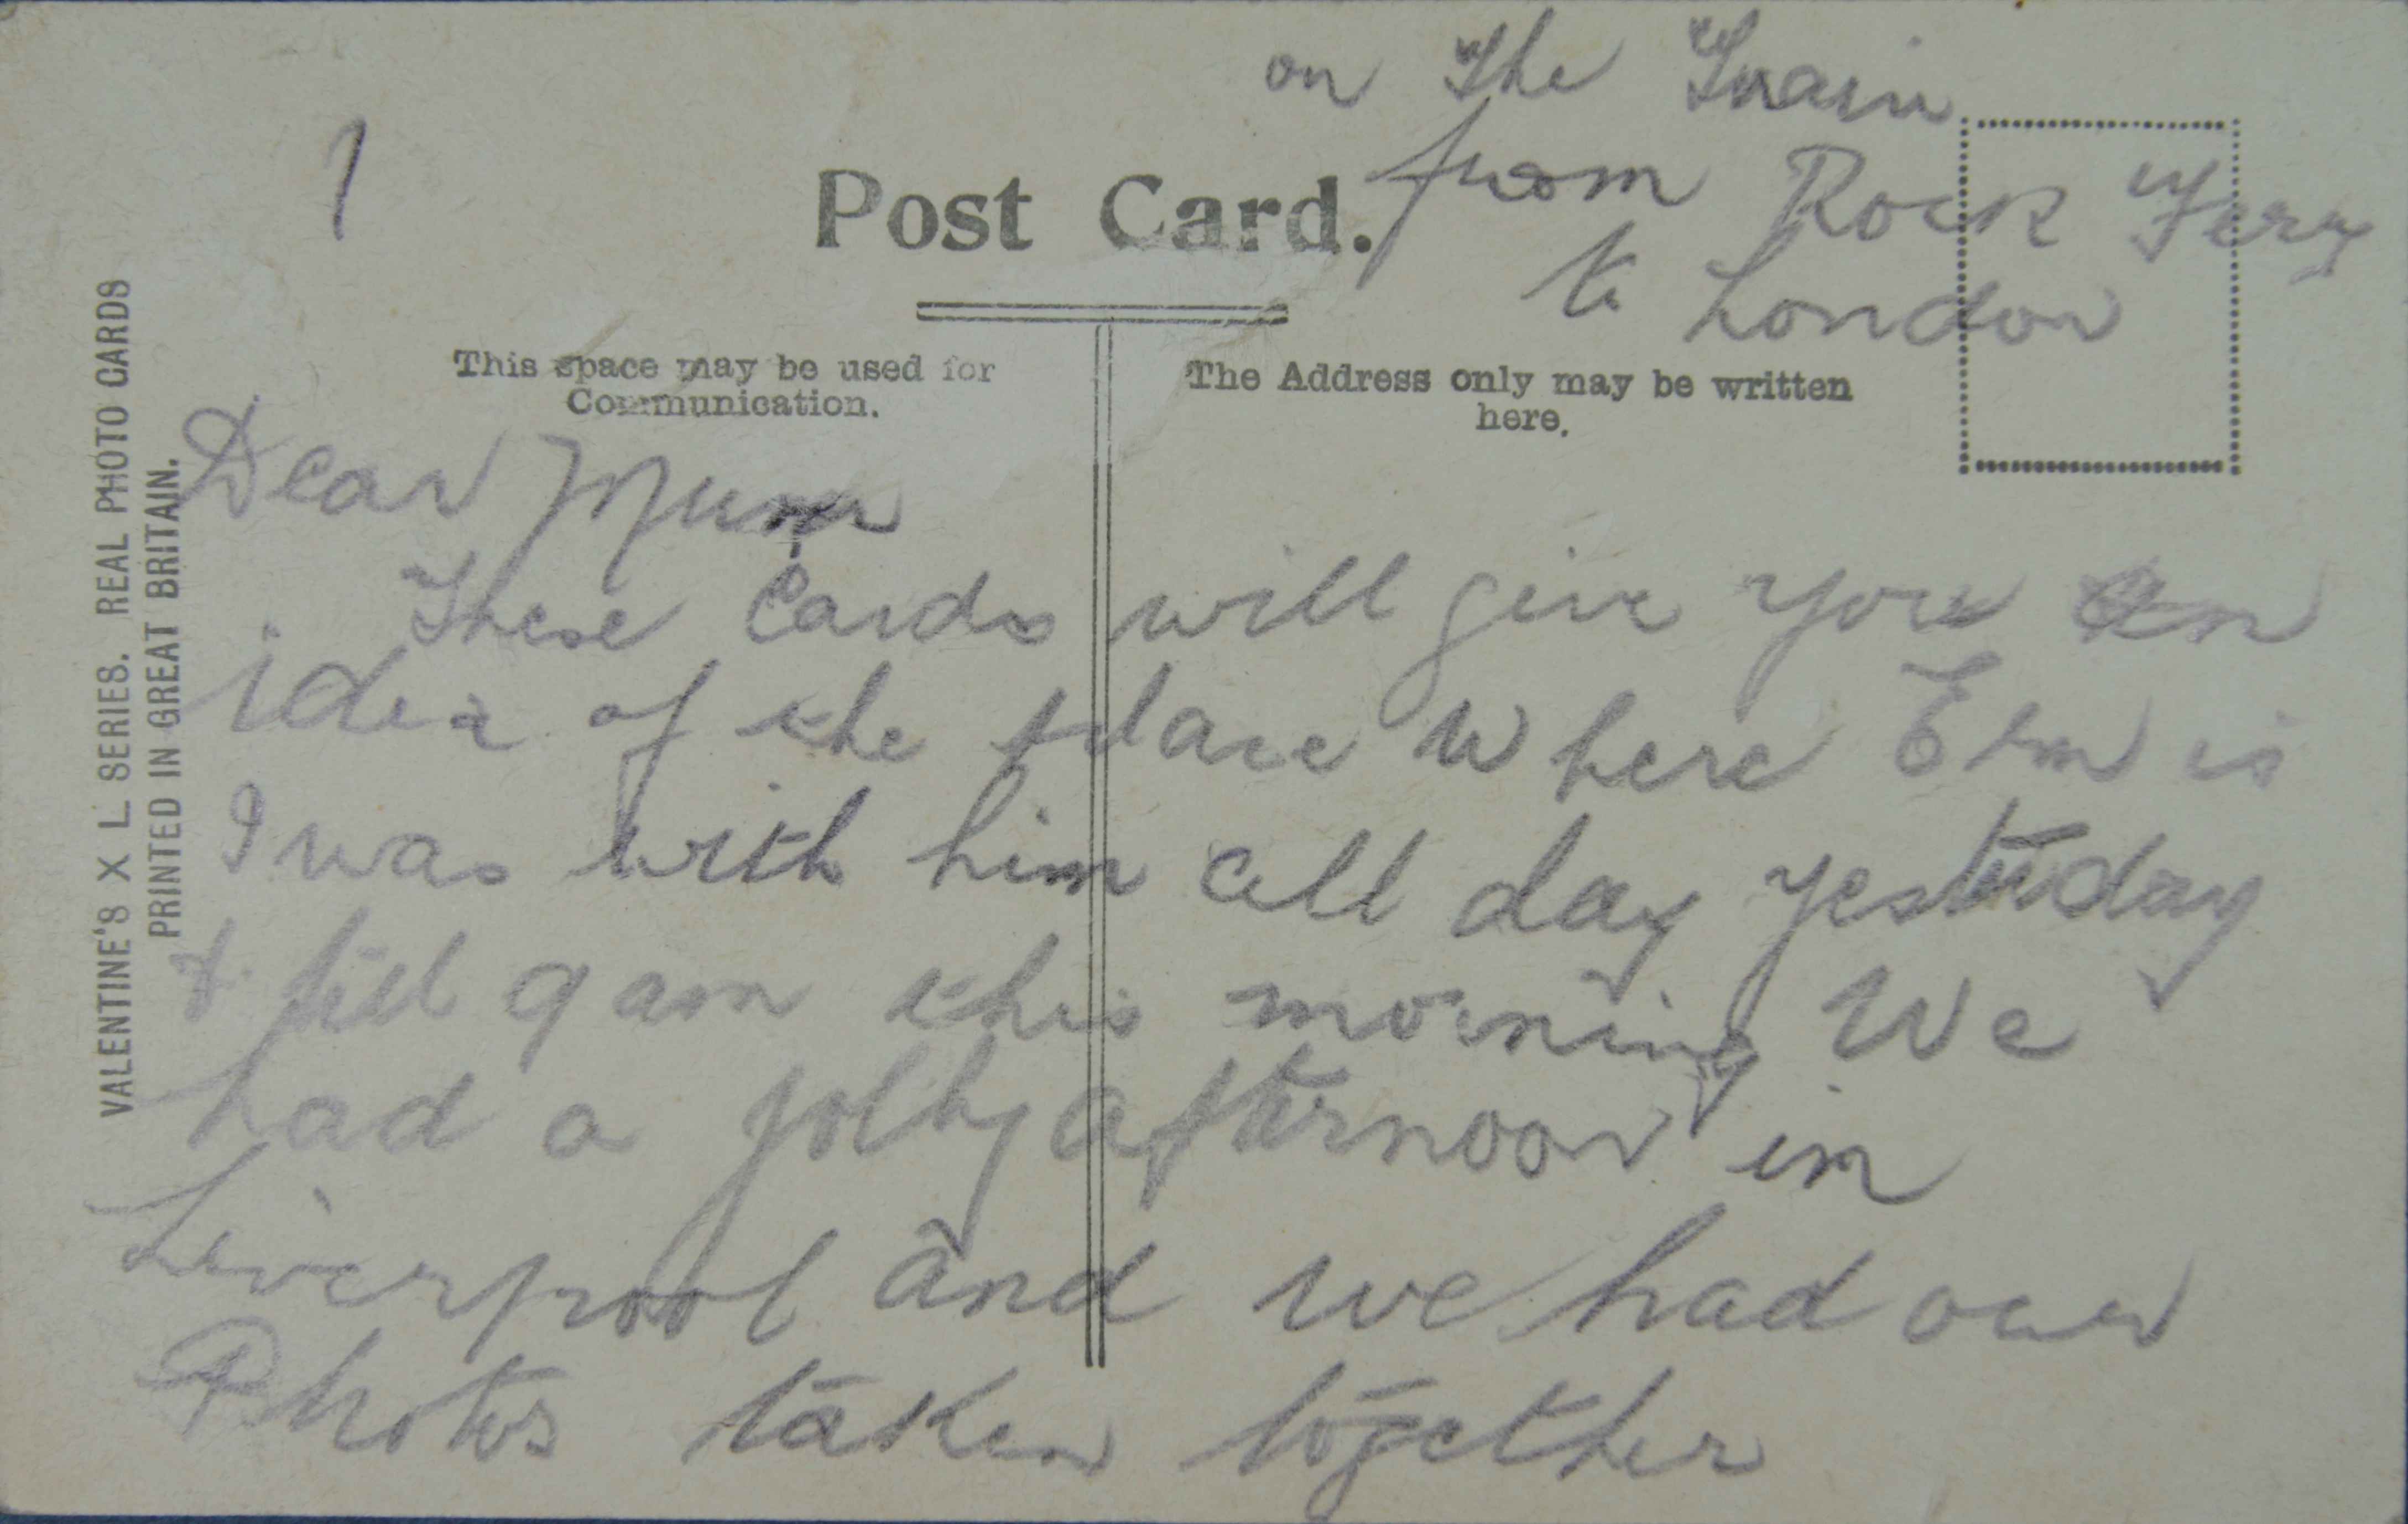 1
on The Train
from Rock Ferry
to London
Post Card.
This space may be used for
Communication.
The Address only may be written
here.
VALENTINE'S X L SERIES. REAL PHOTO CARDS
PRINTED IN GREAT BRITAIN.
Dear Mum
These Cards will give you an
idea of the place where is
I was with him all day yesterday
& till 9 am this morning We
had a jolly afternoon in
Liverpool and we had our
Photos taken together